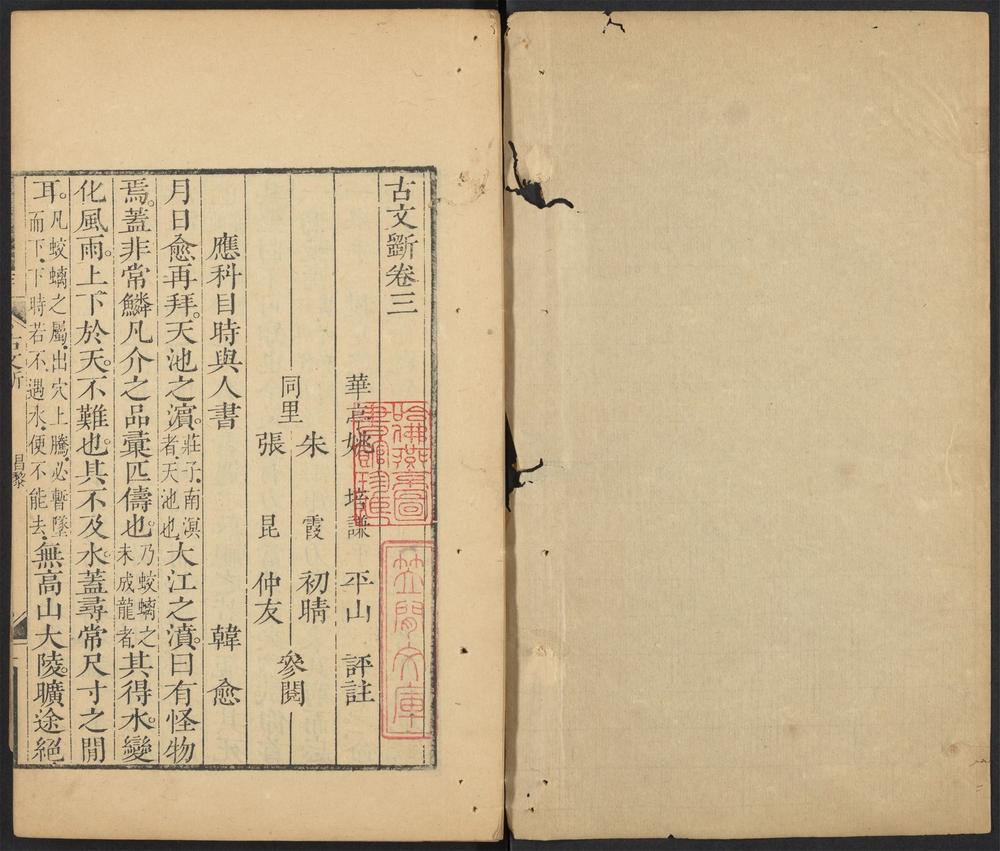 古文斲卷三
華亭姚　培謙　平山　評註
朱　霞　初晴
同里　參閱
張　昆　仲友
應科目時與人書　韓　愈
月日愈再拜。天池之濵。莊子。南溟者。天池也。大江之濆。曰有怪物
焉。蓋非常鱗凡介之品彚匹儔也。乃蛟螭之未成龍者。其得水。變
化風雨。上下於天。不難也。其不及水。蓋尋常尺寸之閒
耳。凡蛟螭之屬。出穴上騰。必暫墜而下。下時若不遇水。便不能去。無高山大陵。曠途絕
古文斲
昌黎
哈佛燕京圖書館珍藏
文庫